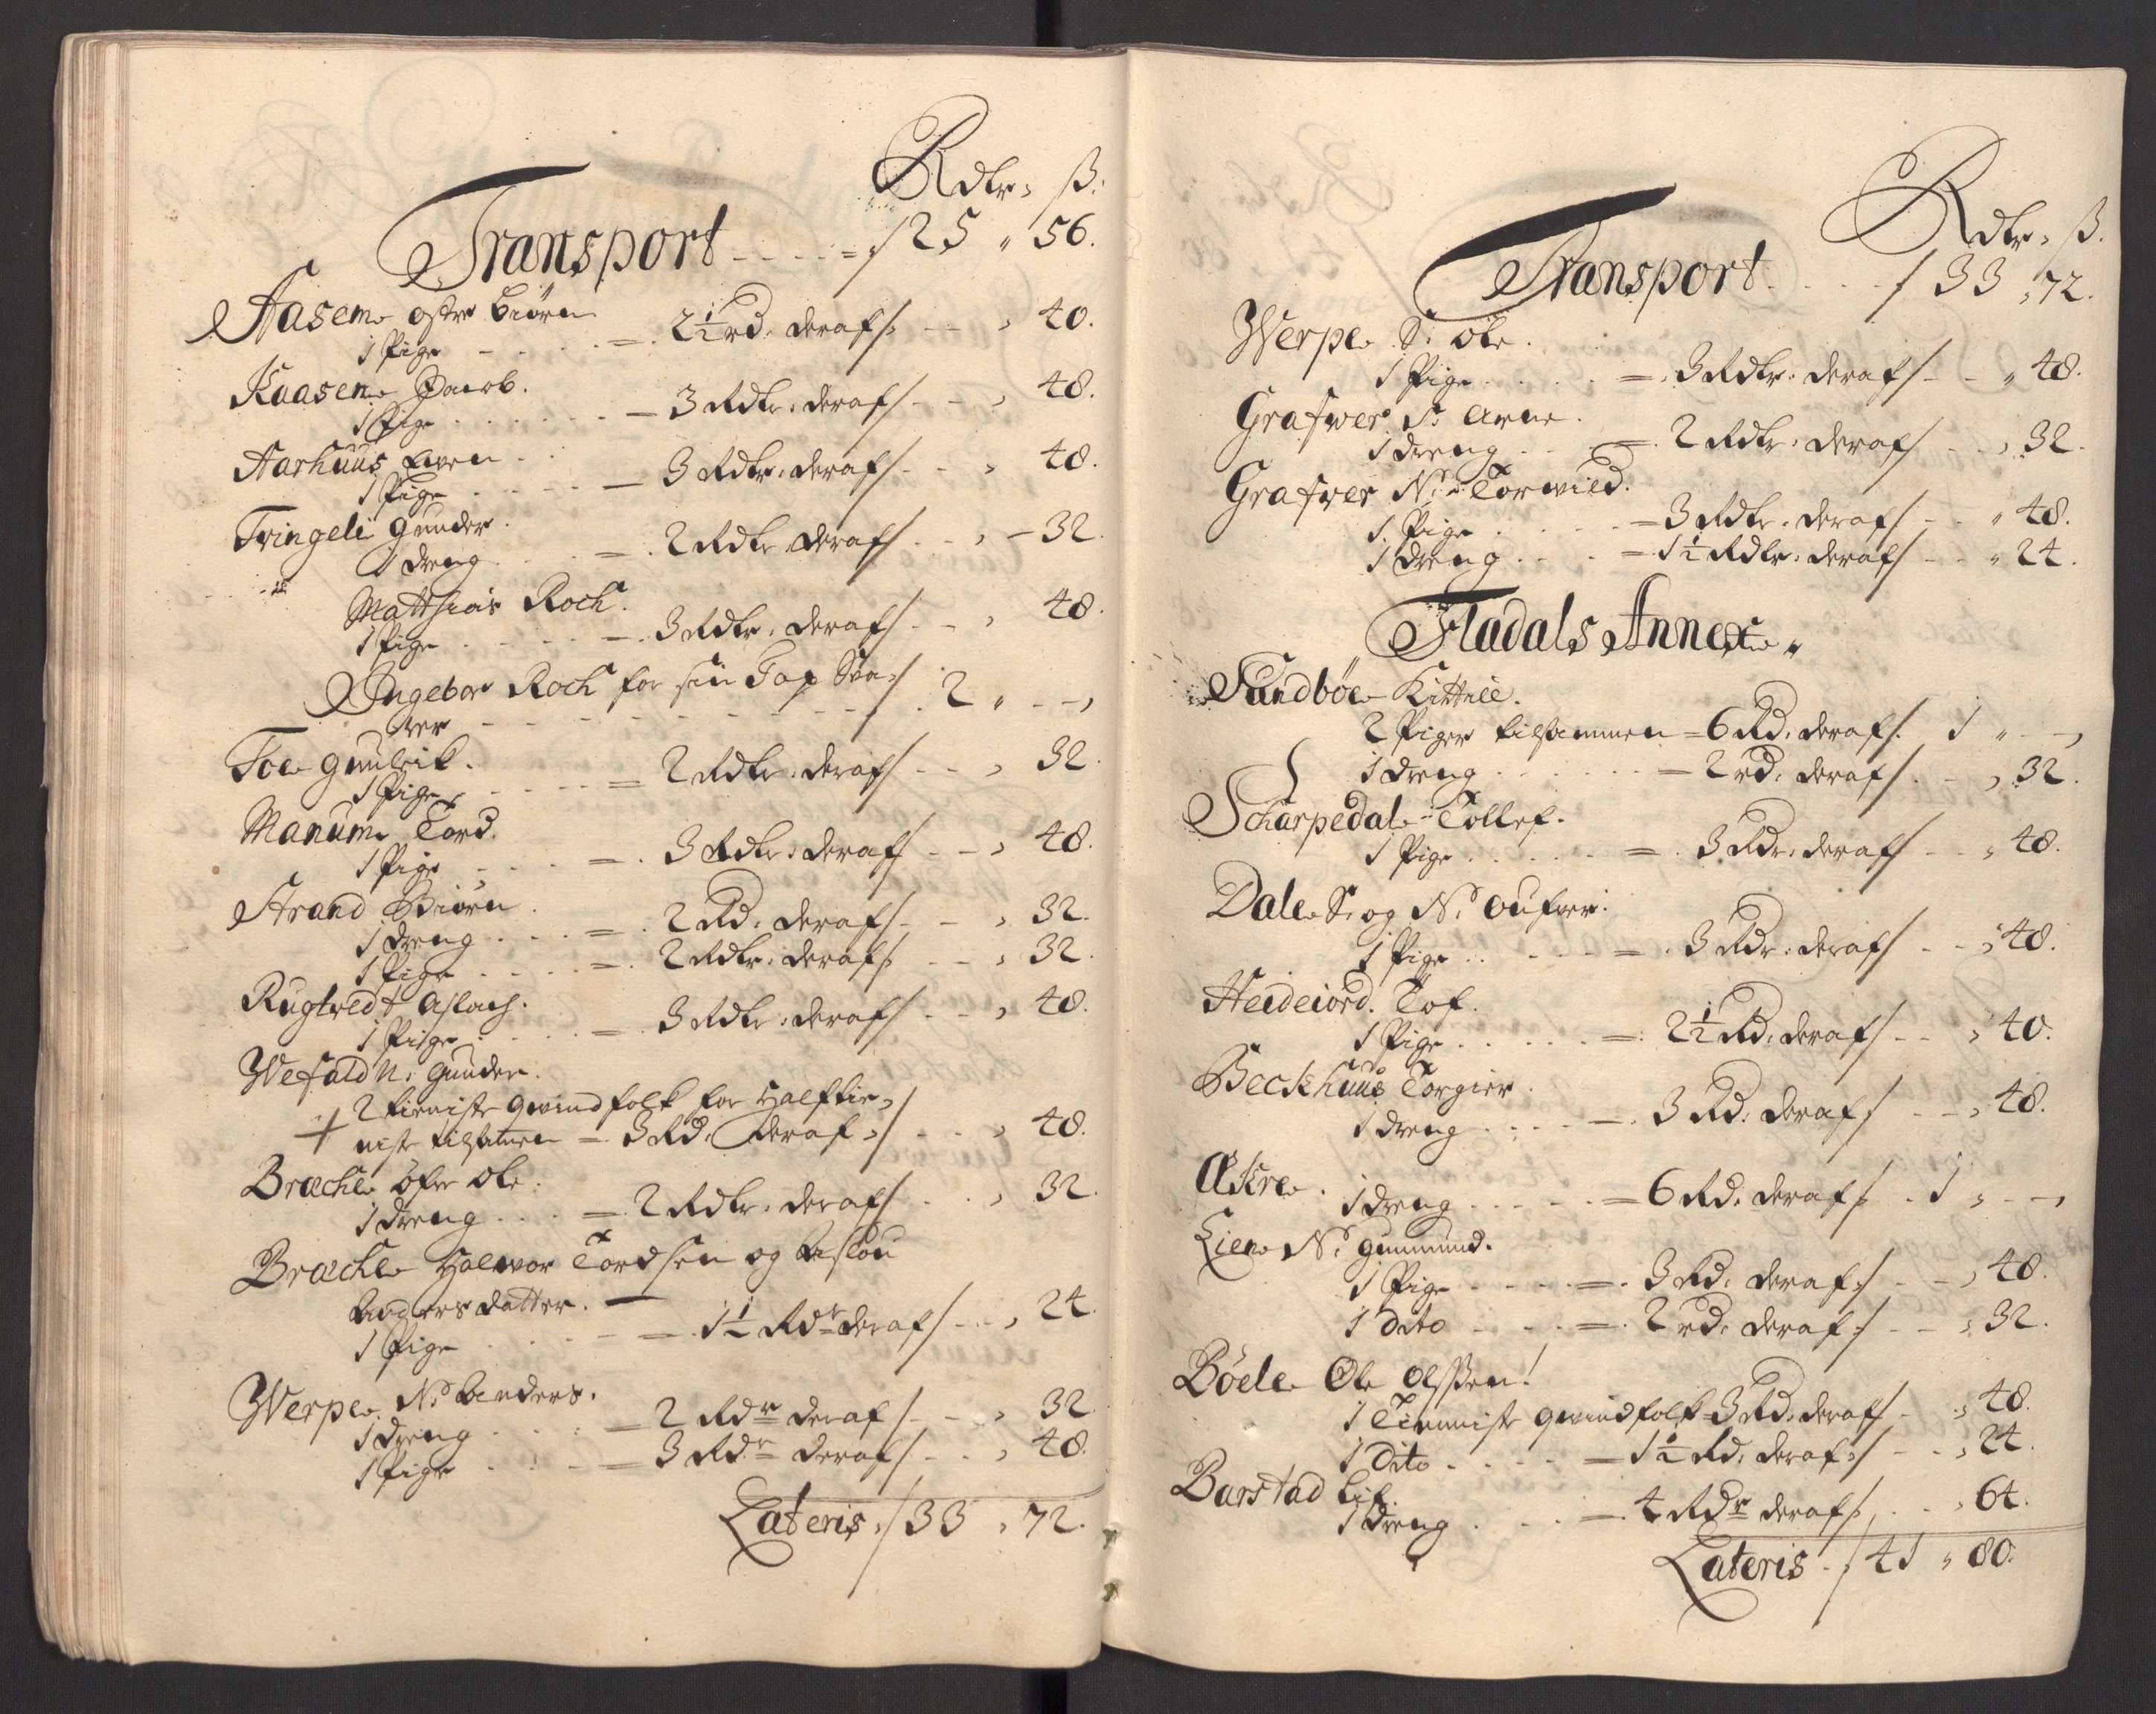 Rdlr: ß:
Transport - - - - = 125 " 56.
Aasem østre Biørn
1 Pige - - - - = 2½ rd. deraf - - , 40.
Kaasen Jacob.
1 Pige . . . . . - 3 Rdlr: deraf - - , 48.
Aarhuus Even - .
1 Pige . . . . . - 3 Rdlr: deraf - - , 48.
Tvingeli Gunder.
1 dreng . . . - . 2 Rdlr deraf . . , - 32.
Matthias Roch.
1 Pige . . . . . - . 3 Rdlr: deraf - - , 48
Ingebor Roch for sin
ver - - - - - - - - - 2 " - -,
Toe Gunleik.
1 Pige . . . . . = 2 Rdlr: deraf - - , 32.
Manum Tord.
1 Pige - - - - = . 3 Rdlr: deraf - - , 48.
Strand Biørn .
1 dreng . . . . = . 2 Rd: deraf - - , 32.
1 Pige . . . . = . 2 Rdlr: deraf - - , 32.
Rugtvedt Aslach.
1 Pige . . . . = 3 Rdlr: deraf - - , 48.
Wefald N: Gunder.
2 tieniste Qvindfolk for halftie-
+ niste tilsamen = 3 Rd: deraf - - , 48.
Bræche øfre Ole.
1 dreng . . . = 2 Rdlr: deraf . . , 32.
Bræche Halvor Tordsen og Aslou
Andersdatter. -
1 Pige . . - = . 1½ Rdr deraf - - , 24.
Werpe N: Anders.
1 dreng . . . . = 2 Rdr deraf - - , 32.
1 Pige . . . . = 3 Rdr deraf - - , 48.
Lateris / 133 , 72.
Rdlr: ß.
Transport . . . . 133 , 72.
Werpe S: Ole .
1 Pige . . . . = . 3 Rdlr: deraf - - " 48.
Grafver S: Arne .
1 dreng . . . = . 2 Rdlr: deraf - - , 32.
Grafver N: Torvild.
1 Pige . . . . = 3 Rdlr: deraf - - " 48.
1 dreng . . . = 1½ Rdlr: deraf - - " 24.
Fladals Annex "
Sundbøe Kittill.
2 Piger tilsammen = 6 Rd: deraf . 1 " - -,
1 dreng . . . . . = 2 rd: deraf . - , 32.
Scharpedal Tollef.
1 Pige . . . . . = . 3 Rdr: deraf - - , 48.
Dale S: og N:
1 Pige . . . . - = . 3 Rdr: deraf - - , 48.
Heideiord. Tof.
1 Pige . . . . . = . 2½ Rd: deraf - - , 40.
Beckhuus Torgier.
1 dreng . . . . = . 3 Rd: deraf - - , 48.
Askre .
1 dreng . . . . . = 6 Rd: deraf . . 1 , - -,
Lien N: Gunmund.
1 Pige . . . . = . 3 Rd: deraf - - , 48.
1 Dito . . . . = . 2 rd: deraf - - , 32.
Böele Ole Olssen.
1 Tienniste Qvindfolk = 3 Rd: deraf - , 48.
1 Dito . . . . = 1½ Rd: deraf - - , 24.
Barstad Lif.
1 dreng . . . = . 4 Rdr deraf . . , 64.
Lateris . / 141 " 80.